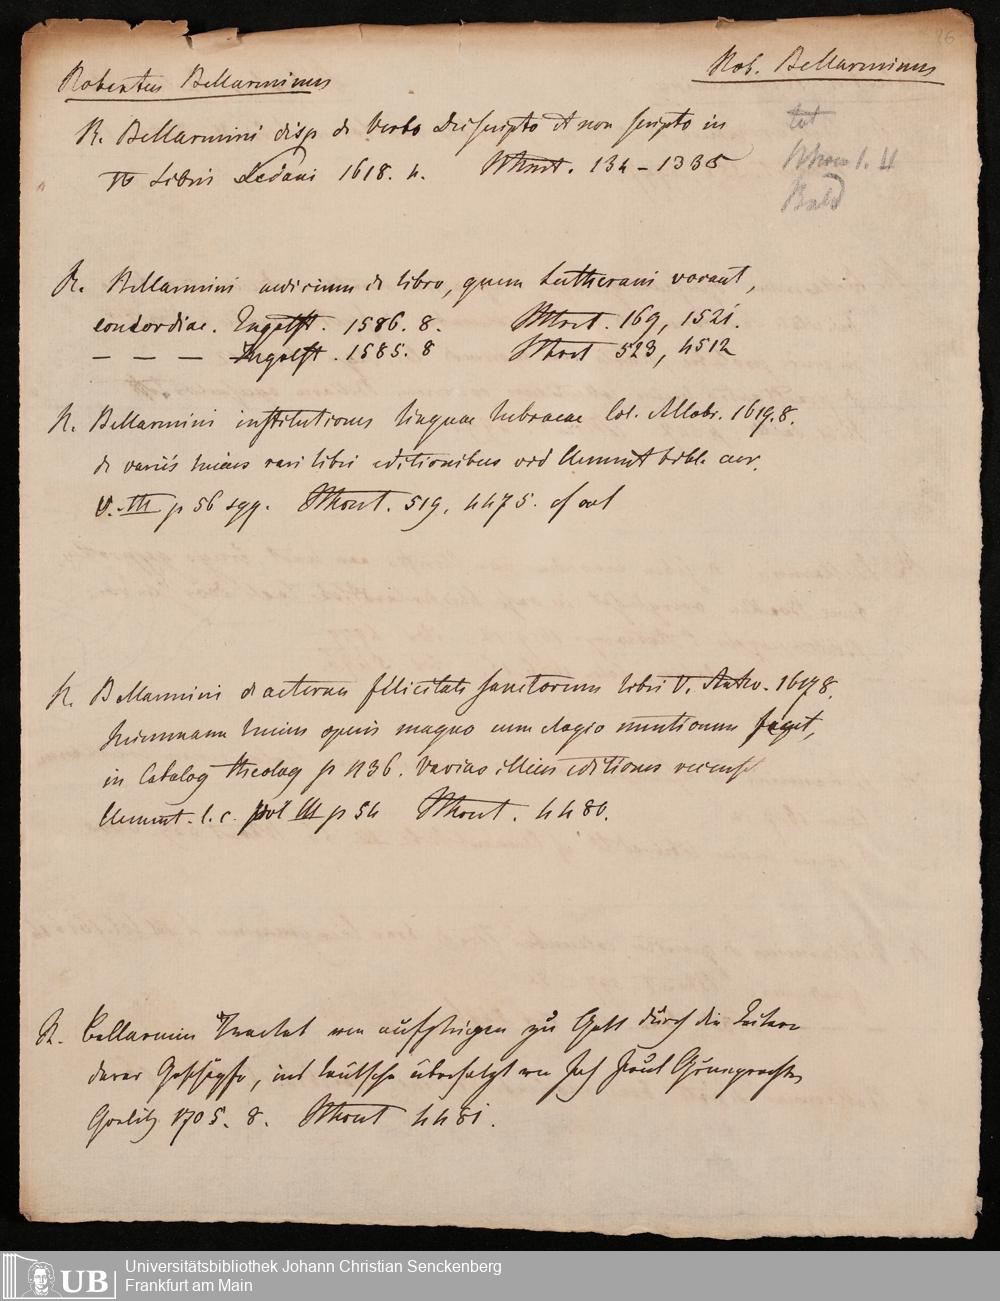 26
Robertus Bellarminus
Rob. Bellarminus
R. Bellarmini disp de Verbo Dei scripto et non scripto in
libris Sedani 1618. 4. 134 – 1335
R. Bellarmini iudicium de libro, quem Lutherani vocant,
concordiae. Ingolst. 1586. 8. 169, 1521.
– – – Ingolst. 1585. 8 523, 4512
R. Bellarmini institutiones linguae hebraicae Col. Allobr. 1619. 8.
de variis huius rari libri editionibus vid Clement bibl. cur.
V. III p 56 sqq. 519, 4475.
R. Bellarmini de aeterna felicitate sanctorum libri V. 1617 8.
huius operis magno cum elogio mentionem facit,
in Catalog theolog p 1136. Varias illius editiones recenset
Clement. l. c. vol III p 54 4480.
R. Bellarmin Tractat von aufsteigen zu Gott durch die Leitern
derer Geschöpfe, ins teutsche übersetzt von
Goerlitz 1705. 8. 4481.
Universitätsbibliothek Johann Christian Senckenberg
UB Frankfurt am Main